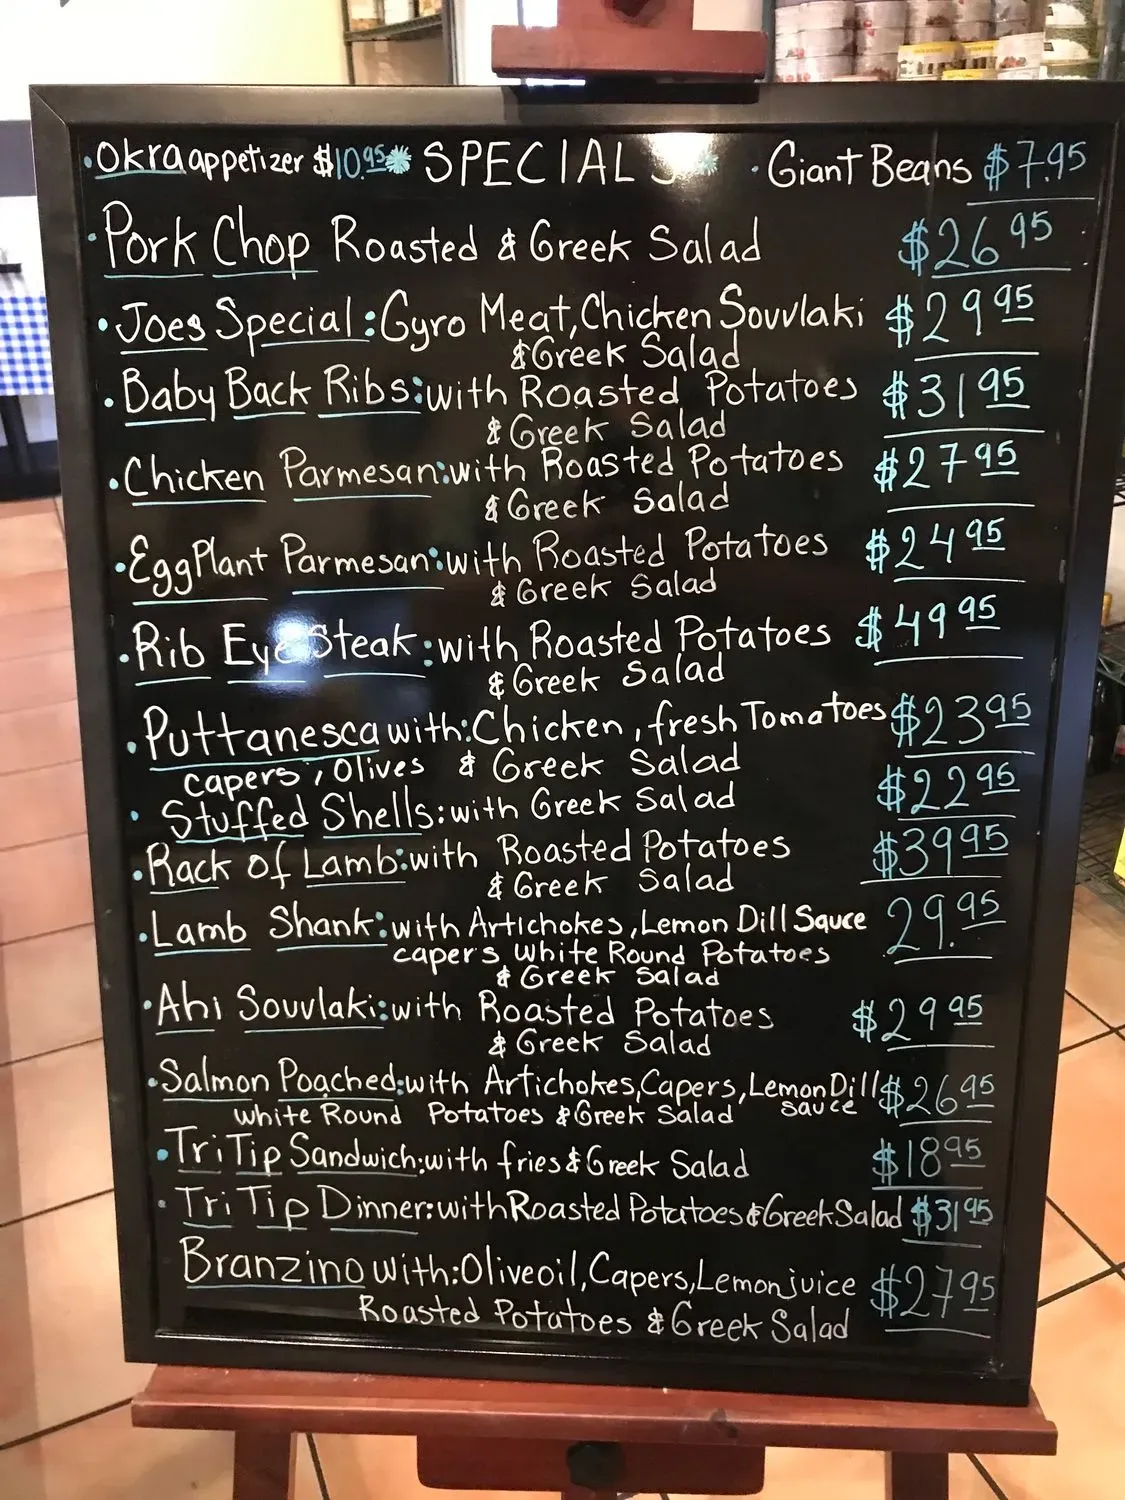 • Okra appetizer $10.95 * SPECIALS * • Giant Beans $7.95
• Pork Chop Roasted & Greek Salad $26 95
• Joes Special: Gyro Meat, Chicken Souvlaki $29 95
& Greek Salad
• Baby Back Ribs: with Roasted Potatoes $31 95
& Greek Salad
• Chicken Parmesan: with Roasted Potatoes $27 95
& Greek Salad
• EggPlant Parmesan: with Roasted Potatoes $24 95
& Greek Salad
• Rib Eye Steak: with Roasted Potatoes $49 95
& Greek Salad
• Puttanesca with: Chicken, fresh Tomatoes $23 95
capers, Olives & Greek Salad
• Stuffed Shells: with Greek Salad $22 95
• Rack of Lamb: with Roasted Potatoes $39 95
& Greek Salad
• Lamb Shank: with Artichokes, Lemon Dill Sauce 29.95
capers White Round Potatoes
& Greek Salad
• Ahi Souvlaki: with Roasted Potatoes $29 95
& Greek Salad
• Salmon Poached: with Artichokes, Capers, Lemon Dill $26 95
White Round Potatoes & Greek Salad sauce
• Tri Tip Sandwich: with fries & Greek Salad $18 95
• Tri Tip Dinner: with Roasted Potatoes & Greek Salad $31 95
Branzino with: Olive oil, Capers, Lemon juice $27 95
Roasted Potatoes & Greek Salad